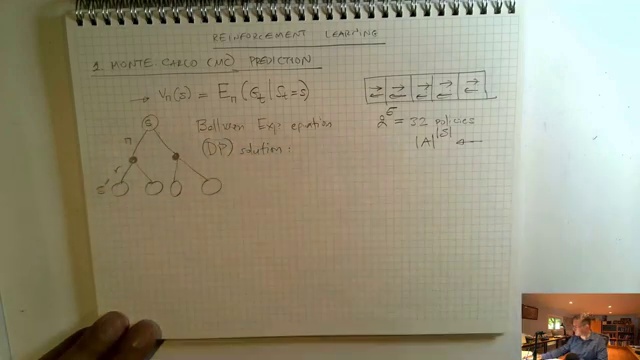 REINFORCEMENT LEARNING
1. MONTE CARLO (MC) PREDICTION
→ Vπ(s) = Eπ(Gt | St = s)
S
Bellman Exp. equation
(DP) solution:
π
r
s'
2^5 = 32 policies
|A|^|S| ←